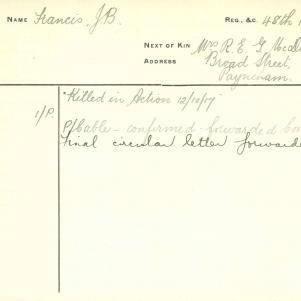 NAME Francis, J.B. REG. &C. 48th
NEXT OF KIN Mrs R. E. G
ADDRESS Broad Street,
Payneham.
"Killed in Action 12/10/17"
1/P. P/Cable - confirmed - forwarded
Final circular letter forwarde